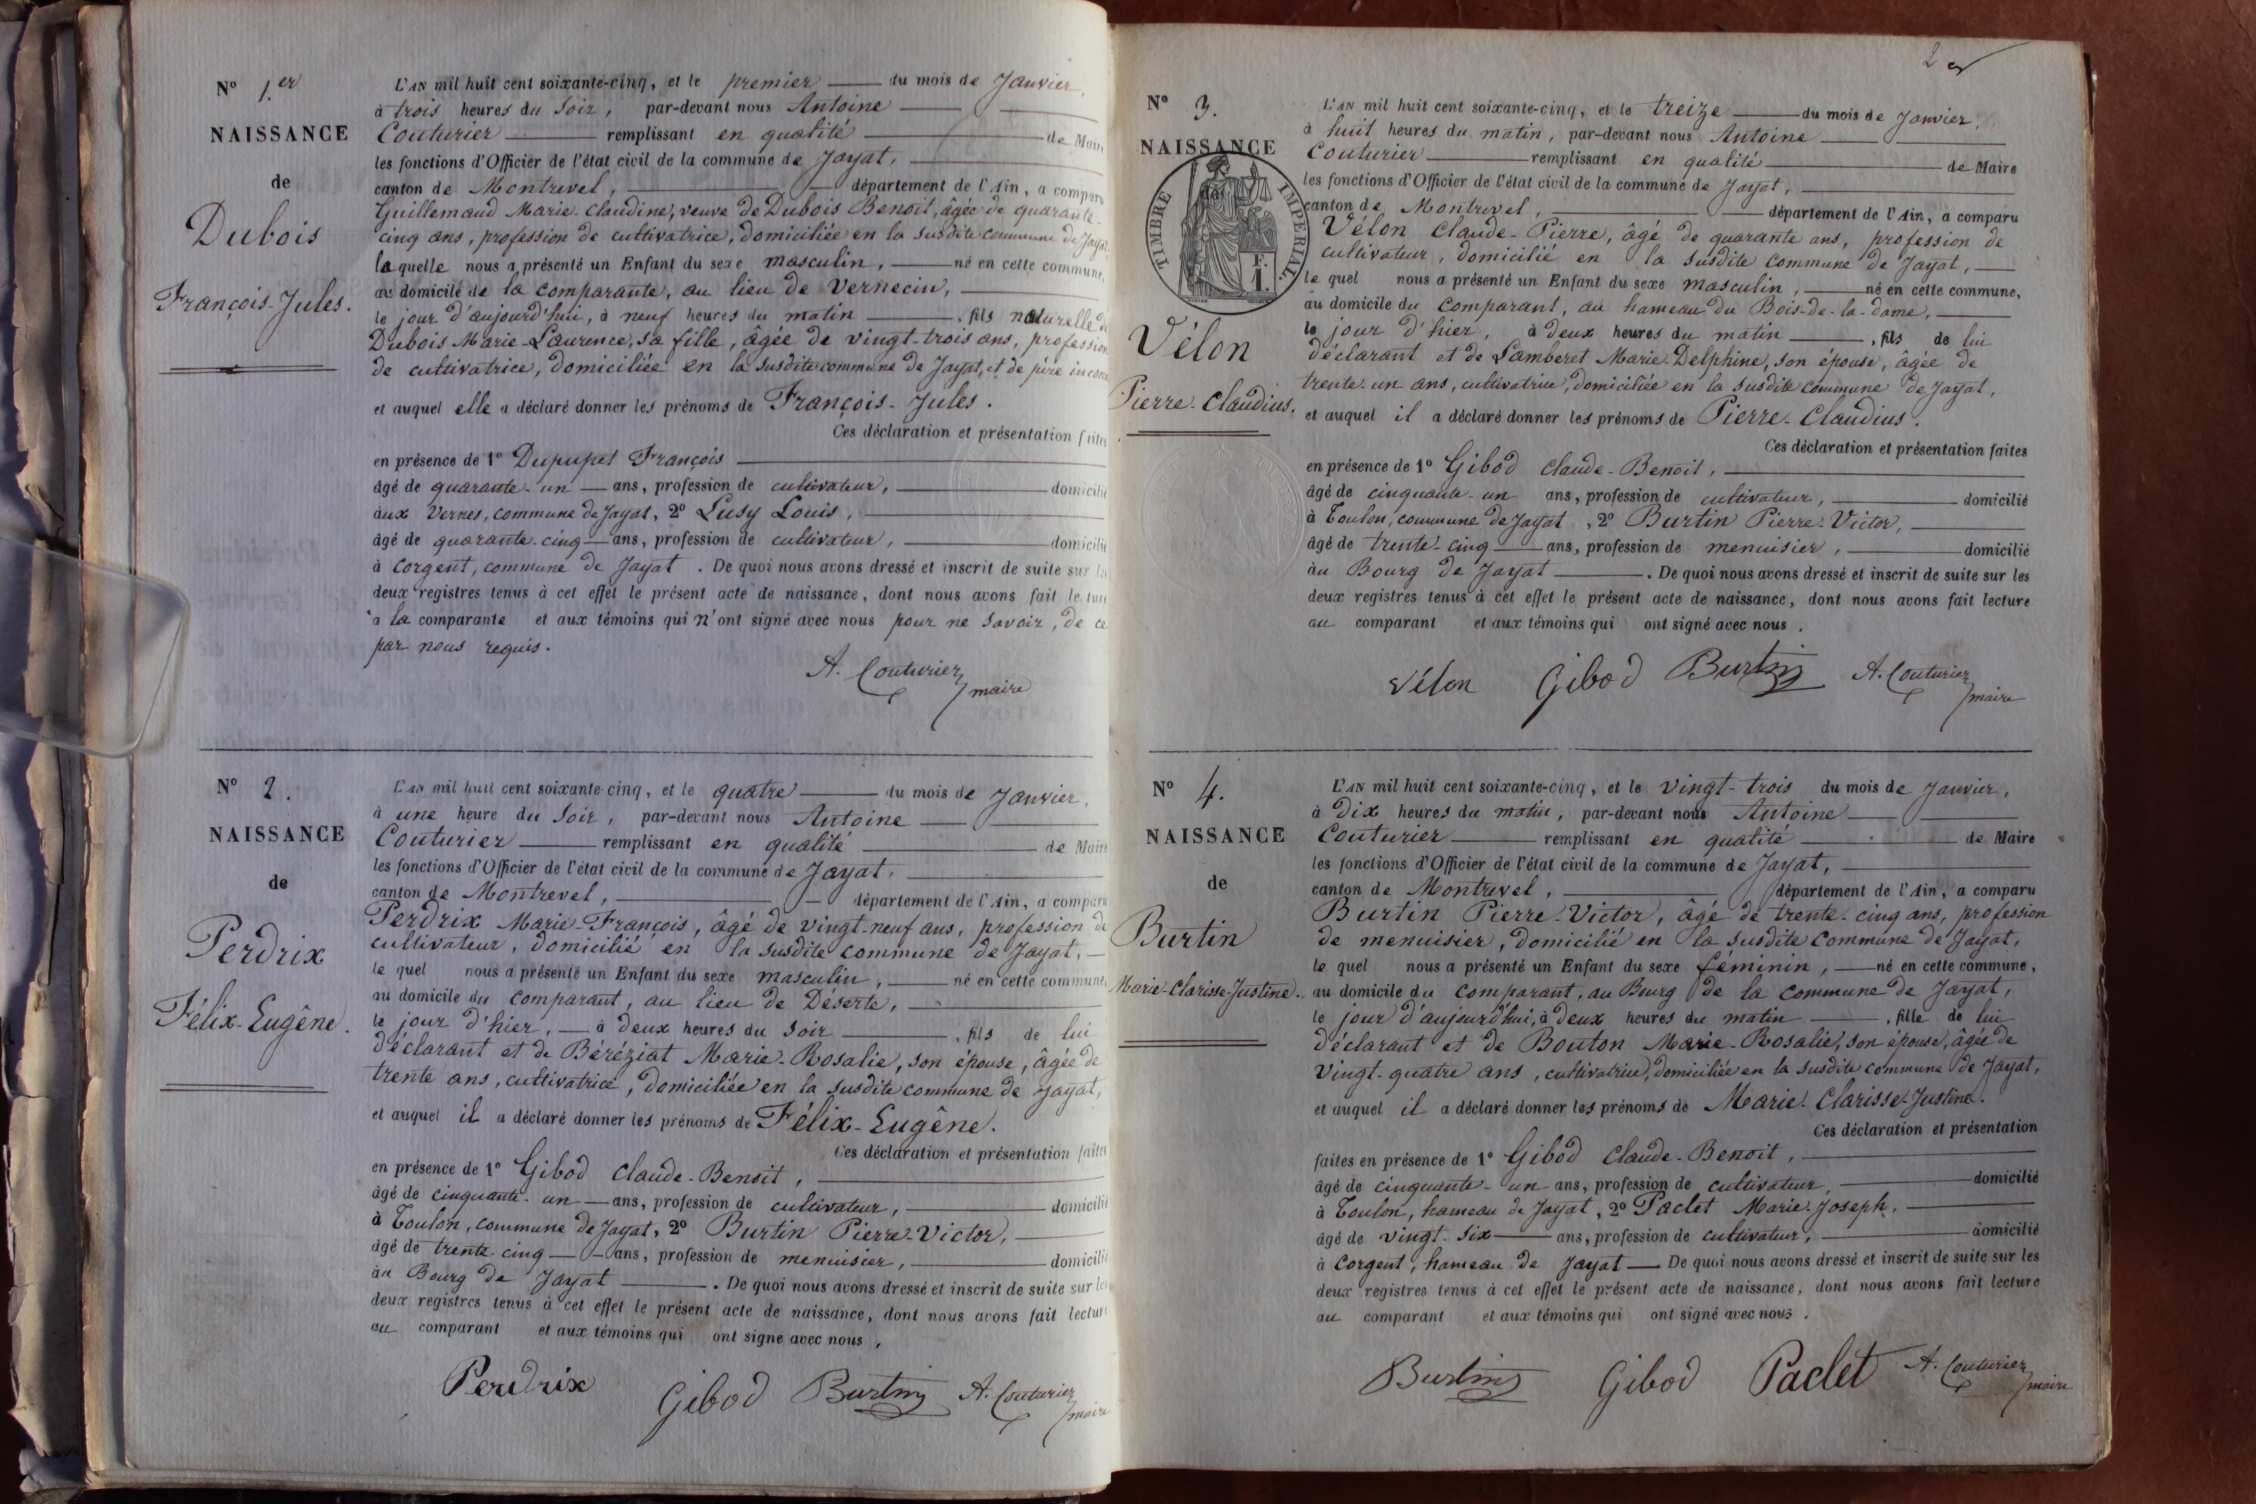 N° 1.er
NAISSANCE
de
Dubois
François-Jules.
L'AN mil huit cent soixante-cinq, et le premier du mois de Janvier,
à trois heures du soir, par-devant nous Antoine
Couturier remplissant en qualité de Maire
les fonctions d'Officier de l'état civil de la commune de Jayat,
canton de Montrevel, département de l'Ain, a comparu
Guillemaud Marie-Claudine, veuve de Dubois Benoit, âgée de quarante-
cinq ans, profession de cultivatrice, domiciliée en la susdite commune de Jayat,
laquelle nous a présenté un Enfant du sexe masculin, né en cette commune,
au domicile de la comparante, au lieu de Vernecin,
le jour d'aujourd'hui, à neuf heures du matin, fils naturelle de
Dubois Marie-Laurence, sa fille, âgée de vingt-trois ans, profession
de cultivatrice, domiciliée en la susdite commune de Jayat, et de père inconnu
et auquel elle a déclaré donner les prénoms de François-Jules.
Ces déclaration et présentation faites
en présence de 1° Dupupet François
âgé de quarante-un ans, profession de cultivateur, domicilié
aux Vernes, commune de Jayat, 2° Lusy Louis,
âgé de quarante-cinq ans, profession de cultivateur, domicilié
à Corgent, commune de Jayat. De quoi nous avons dressé et inscrit de suite sur les
deux registres tenus à cet effet le présent acte de naissance, dont nous avons fait lecture
à la comparante et aux témoins qui n'ont signé avec nous pour ne savoir, de ce
par nous requis.
A. Couturier
maire
N° 2.
NAISSANCE
de
Perdrix
Félix-Eugêne.
L'AN mil huit cent soixante-cinq, et le quatre du mois de Janvier,
à une heure du soir, par-devant nous Antoine
Couturier remplissant en qualité de Maire
les fonctions d'Officier de l'état civil de la commune de Jayat,
canton de Montrevel, département de l'Ain, a comparu
Perdrix Marie-François, âgé de vingt-neuf ans, profession de
cultivateur, domicilié en la susdite commune de Jayat,
le quel nous a présenté un Enfant du sexe masculin, né en cette commune,
au domicile du comparant, au lieu de Déserte,
le jour d'hier, à deux heures du soir, fils de lui
déclarant et de Béréziat Marie-Rosalie, son épouse, âgée de
trente ans, cultivatrice, domiciliée en la susdite commune de Jayat,
et auquel il a déclaré donner les prénoms de Félix-Eugêne.
Ces déclaration et présentation faites
en présence de 1° Gibod Claude-Benoit,
âgé de cinquante-un ans, profession de cultivateur, domicilié
à Toulon, commune de Jayat, 2° Burtin Pierre-Victor,
âgé de trente-cinq ans, profession de menuisier, domicilié
au Bourg de Jayat. De quoi nous avons dressé et inscrit de suite sur les
deux registres tenus à cet effet le présent acte de naissance, dont nous avons fait lecture
au comparant et aux témoins qui ont signé avec nous.
Perdrix Gibod Burtin A. Couturier
maire
2
N° 3.
NAISSANCE
de
TIMBRE IMPERIAL
F.
1.
Vélon
Pierre-Claudius.
L'AN mil huit cent soixante-cinq, et le treize du mois de Janvier,
à huit heures du matin, par-devant nous Antoine
Couturier remplissant en qualité de Maire
les fonctions d'Officier de l'état civil de la commune de Jayat,
canton de Montrevel, département de l'Ain, a comparu
Vélon Claude-Pierre, âgé de quarante ans, profession de
cultivateur, domicilié en la susdite commune de Jayat,
le quel nous a présenté un Enfant du sexe masculin, né en cette commune,
au domicile du comparant, au hameau du Bois-de-la-dame,
le jour d'hier, à deux heures du matin, fils de lui
déclarant et de Lamberet Marie-Delphine, son épouse, âgée de
trente-un ans, cultivatrice, domiciliée en la susdite commune de Jayat,
et auquel il a déclaré donner les prénoms de Pierre-Claudius.
Ces déclaration et présentation faites
en présence de 1° Gibod Claude-Benoit,
âgé de cinquante-un ans, profession de cultivateur, domicilié
à Toulon, commune de Jayat, 2° Burtin Pierre-Victor,
âgé de trente-cinq ans, profession de menuisier, domicilié
au Bourg de Jayat. De quoi nous avons dressé et inscrit de suite sur les
deux registres tenus à cet effet le présent acte de naissance, dont nous avons fait lecture
au comparant et aux témoins qui ont signé avec nous.
Vélon Gibod Burtin A. Couturier
maire
N° 4.
NAISSANCE
de
Burtin
Marie-Clarisse-Justine.
L'AN mil huit cent soixante-cinq, et le vingt-trois du mois de Janvier,
à dix heures du matin, par-devant nous Antoine
Couturier remplissant en qualité de Maire
les fonctions d'Officier de l'état civil de la commune de Jayat,
canton de Montrevel, département de l'Ain, a comparu
Burtin Pierre-Victor, âgé de trente-cinq ans, profession
de menuisier, domicilié en la susdite commune de Jayat,
le quel nous a présenté un Enfant du sexe féminin, né en cette commune,
au domicile du comparant, au Bourg de la commune de Jayat,
le jour d'aujourd'hui, à deux heures du matin, fille de lui
déclarant et de Bouton Marie-Rosalie, son épouse, âgée de
vingt-quatre ans, cultivatrice, domiciliée en la susdite commune de Jayat,
et auquel il a déclaré donner les prénoms de Marie-Clarisse-Justine.
Ces déclaration et présentation
faites en présence de 1° Gibod Claude-Benoit,
âgé de cinquante-un ans, profession de cultivateur, domicilié
à Toulon, hameau de Jayat, 2° Paclet Marie-Joseph,
âgé de vingt-six ans, profession de cultivateur, domicilié
à Corgent, hameau de Jayat De quoi nous avons dressé et inscrit de suite sur les
deux registres tenus à cet effet le présent acte de naissance, dont nous avons fait lecture
au comparant et aux témoins qui ont signé avec nous.
Burtin Gibod Paclet A. Couturier
maire